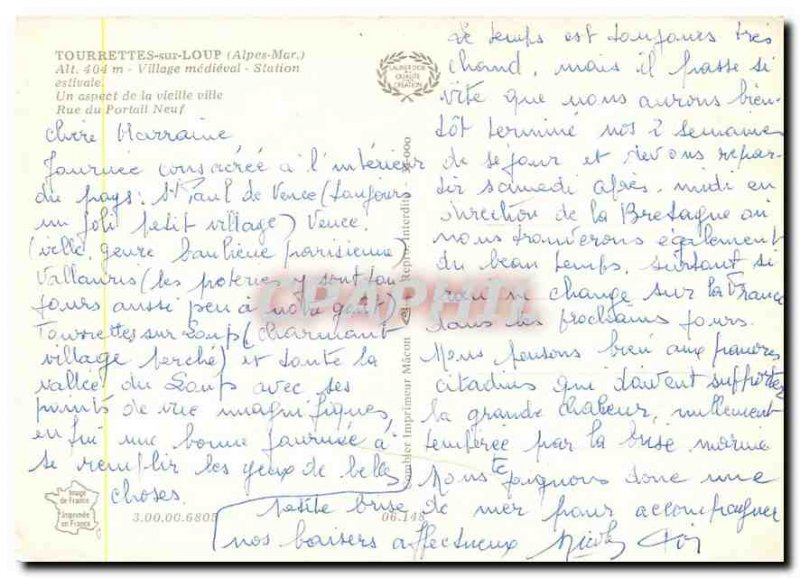 TOURRETTES-sur-LOUP (Alpes-Mar.)
Alt. 404 m - Village médiéval - Station
estivale.
Un aspect de la vieille ville
Rue du Portail Neuf
Chère Marraine
Journée consacrée à l'intérieur
du pays: St Paul de Vence (toujours
un joli petit village) Vence
(ville genre banlieue parisienne)
Vallauris (les poteries y sont tou
jours aussi peu à notre goût)
Tourrettes sur Loup (charmant
village perché) et toute la
vallée du Loup avec ses
points de vue magnifiques,
enfin une bonne journée à
se remplir les yeux de belles
choses.
Le temps est toujours très
chaud, mais il passe si
vite que nous aurons bien-
tôt terminé nos 2 semaines
de séjour et devons repar-
tir samedi après-midi en
direction de la Bretagne où
nous trouverons également
du beau temps, surtout si
rien ne change sur la France
dans les prochains jours.
Nous pensons bien aux pauvres
citadins qui doivent supporter
la grande chaleur, nullement
tempérée par la brise marine
Nous te joignons donc une
petite brise de mer pour accompagner
nos baisers affectueux
Combier Imprimeur Mâcon
Repro. Interdite
Image
de France
Imprimée
en France
3.00.00.6805
06.148
CPAPHIL